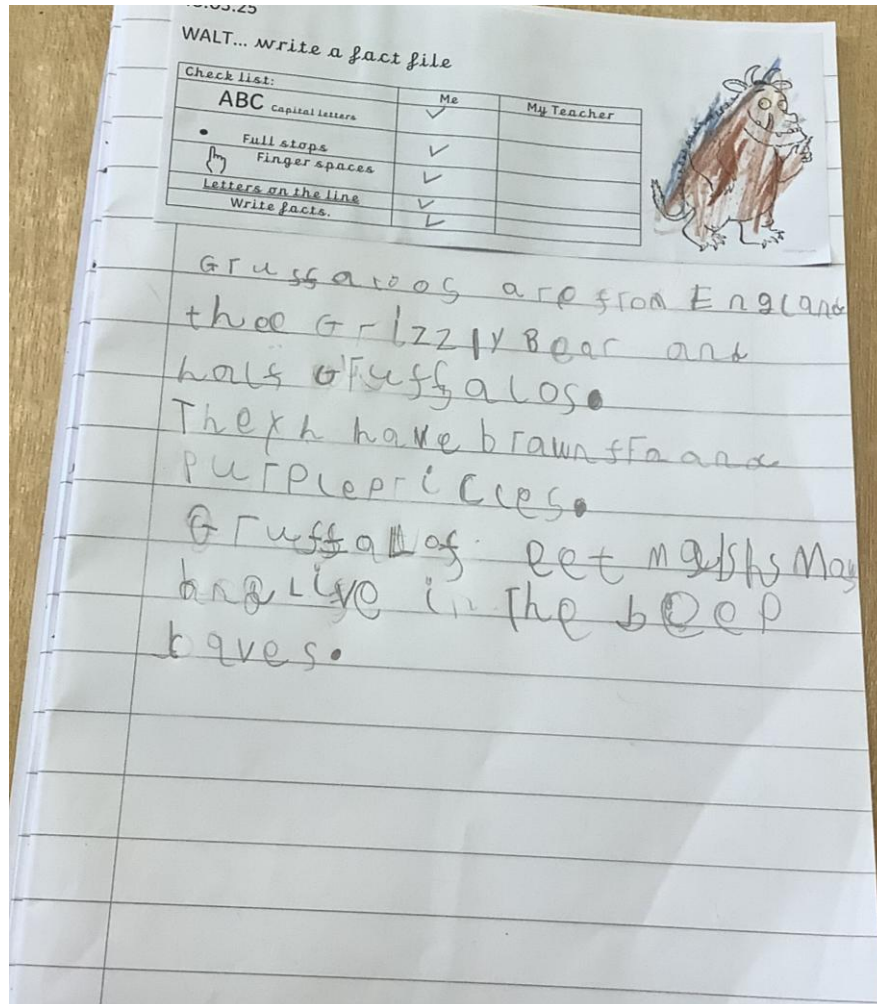 WALT... write a fact file
Check list:
Me
My Teacher
ABC Capital letters
Full stops
Finger spaces
Letters on the line
Write facts.
Gruffaloos are from England
thee Grizzly Bear and
half Gruffalos.
Theyh have brawn ffn and
purplepriccles.
Gruffalos eet
Live in The beep
baves.